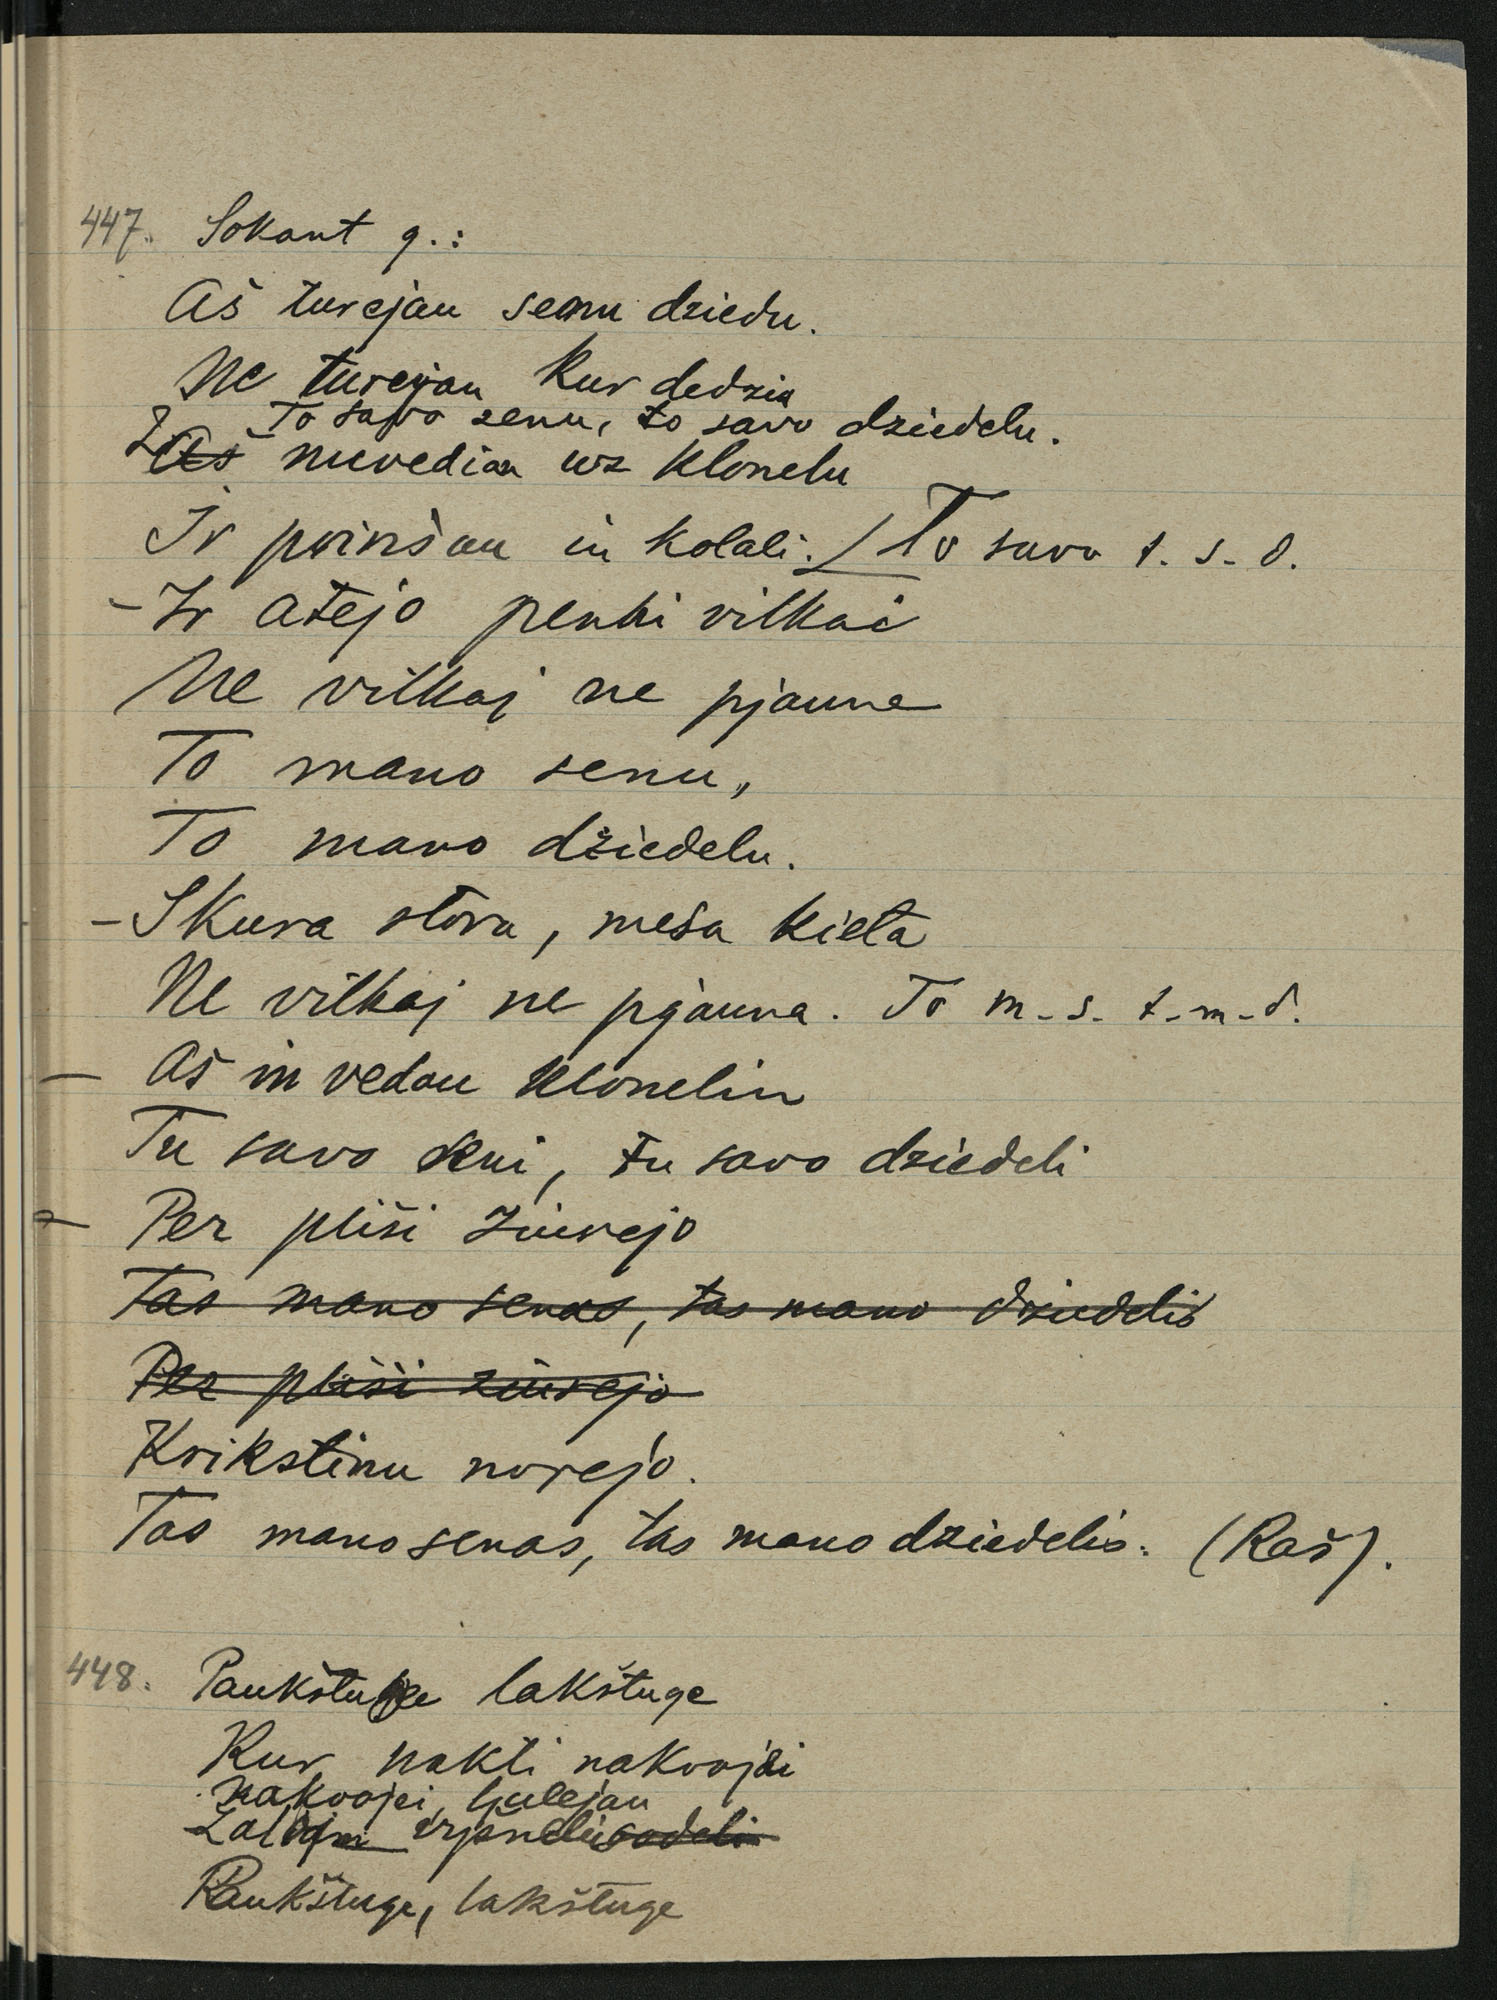 447. Sokant g.:
Aš turejau senu dziedu.
Ne turejau kur dedzia
To savo senu, to savo dziedelu.
Aš nuvediau uz klonelu
Ir pririšau in kolali. / To savo t. s. d.
- Ir atejo penki vilkai
Ne vilkaj ne pjauna
To mano senu,
To mano džiedelu.
- Skura stora, mesa kieta
Ne vilkaj ne pjauna. To m. s. t. m. d.
- Aš in vedau klonelin
Tu savo seni, tu savo dziedeli
- Per pliši ziurejo
Tas mano senas, tas mano dziedelis
Per pliši ziurejo
Krikstinu norejo.
Tas mano senas, tas mano dziedelis. (Raš).
448. lakštuge
Kur nakti nakvojei
nakvojei, gulejau
sodeli
Paukštuge, lakštuge